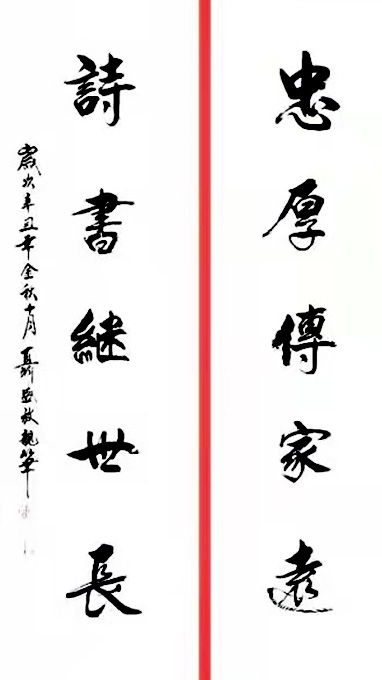 忠厚傳家遠
詩書継世長
歲次辛丑年金秋十月聶益敘親筆